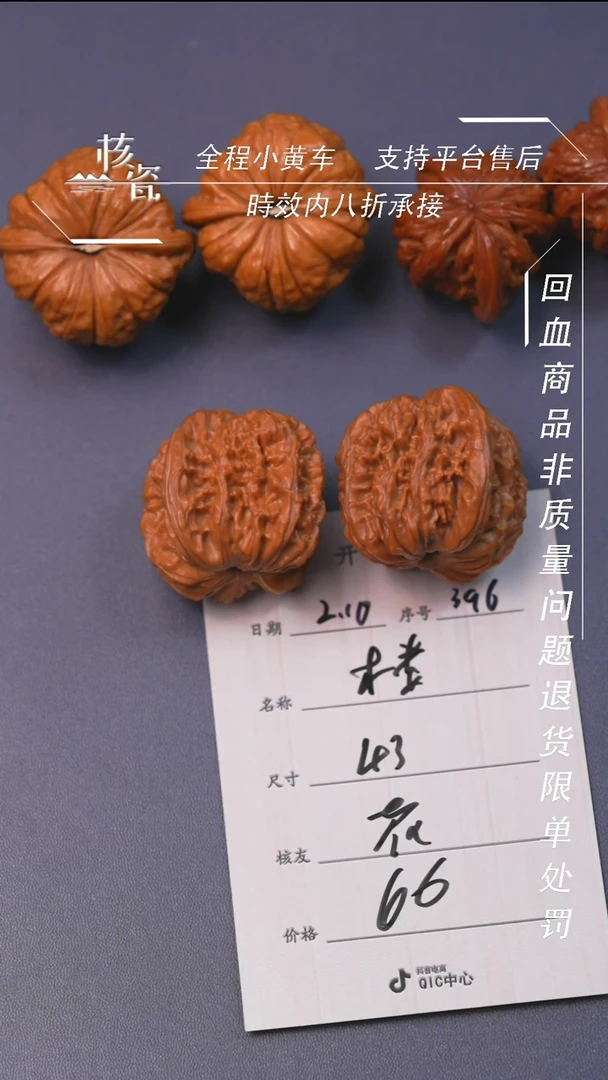 核瓷
全程小黄车 支持平台售后
時效内八折承接
回血商品非质量问题退货限单处罚
开
日期 2.10 序号 396
名称 楼
尺寸 43
核友
价格 66
抖音电商
QIC中心